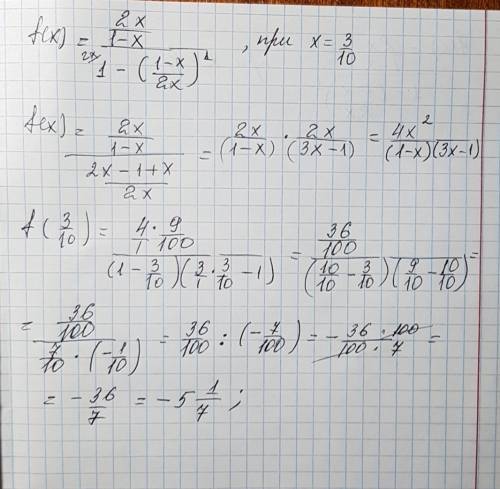 f(x) = (2x/(1-x)) / (1 - ((1-x)/2x)^1), при x = 3/10
2x
f(x) = (2x/(1-x)) / ((2x-1+x)/2x) = 2x/(1-x) · 2x/(3x-1) = 4x²/((1-x)(3x-1))
f(3/10) = (4/1 · 9/100) / ((1 - 3/10)(3/1 · 3/10 - 1)) = (36/100) / ((10/10 - 3/10)(9/10 - 10/10)) =
= (36/100) / (7/10 · (-1/10)) = 36/100 : (-7/100) = - (36 · 100)/(100 · 7) =
= - 36/7 = - 5 1/7 ;